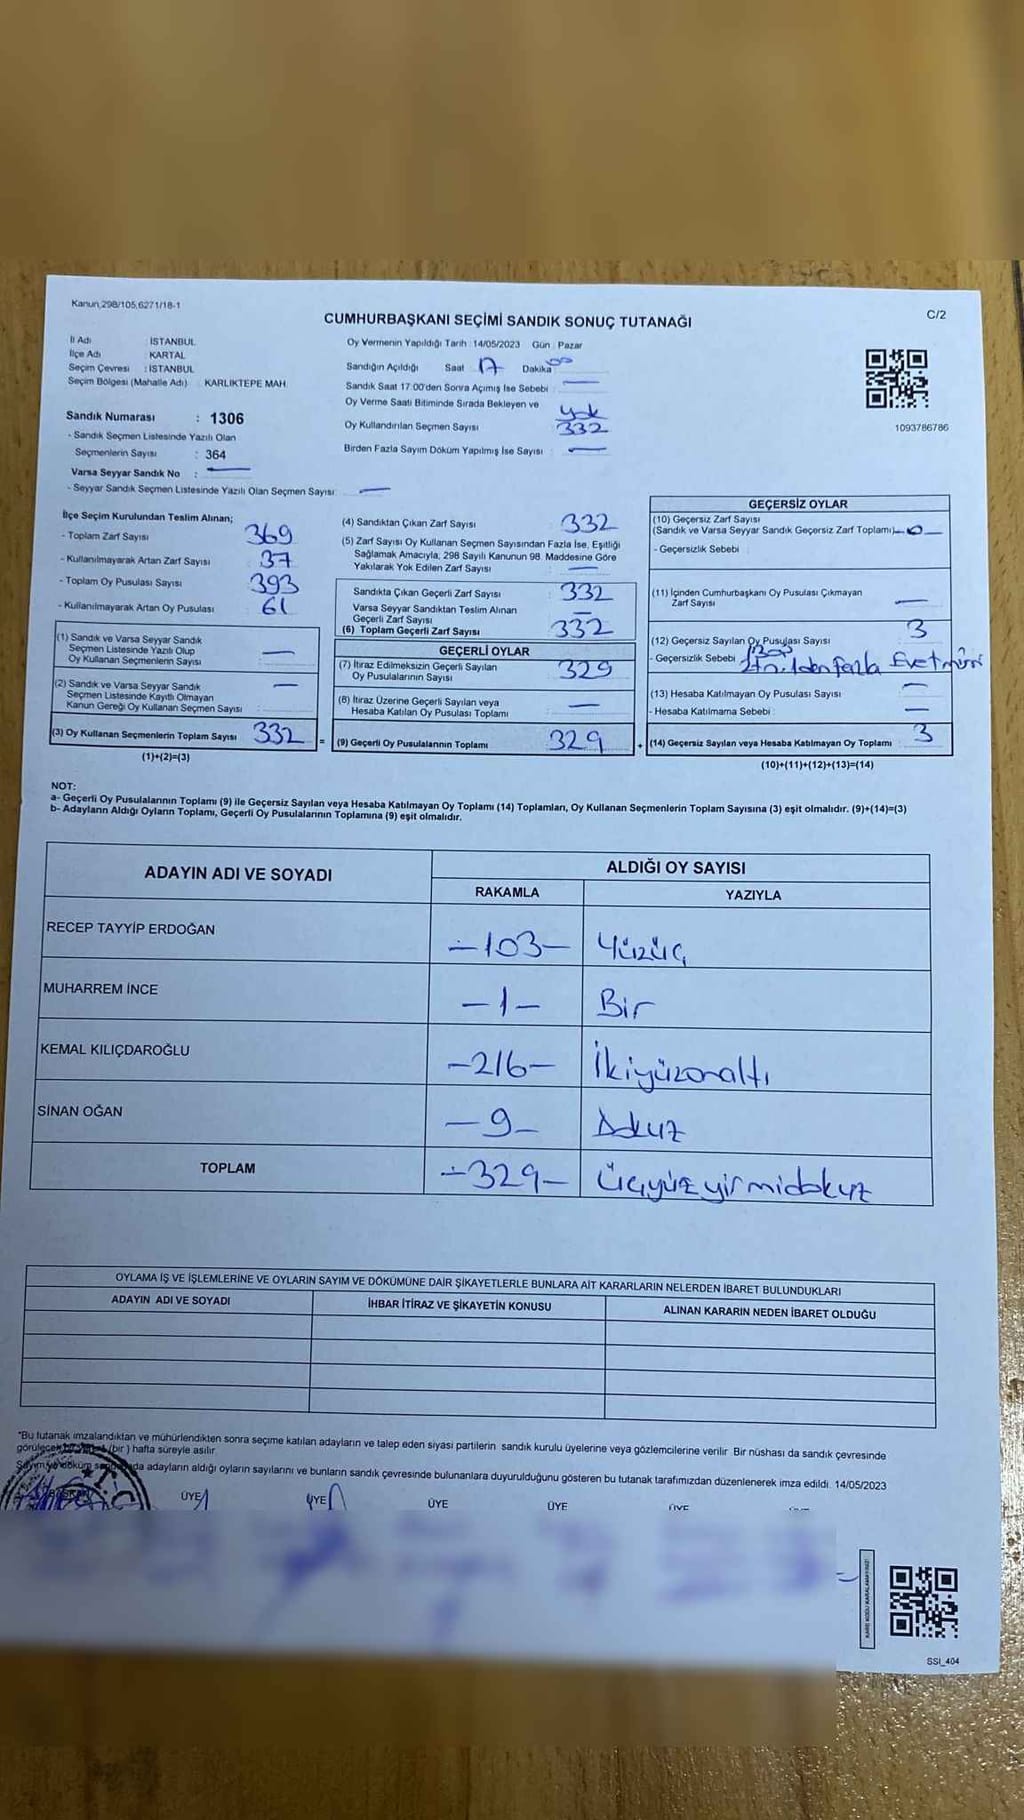 Kanun,298/105,6271/18-1
C/2
CUMHURBAŞKANI SEÇİMİ SANDIK SONUÇ TUTANAĞI
İl Adı : İSTANBUL
İlçe Adı : KARTAL
Seçim Çevresi : İSTANBUL
Seçim Bölgesi (Mahalle Adı) : KARLIKTEPE MAH.
Sandık Numarası : 1306
- Sandık Seçmen Listesinde Yazılı Olan
Seçmenlerin Sayısı : 364
Varsa Seyyar Sandık No : —
- Seyyar Sandık Seçmen Listesinde Yazılı Olan Seçmen Sayısı: —
Oy Vermenin Yapıldığı Tarih : 14/05/2023 Gün : Pazar
Sandığın Açıldığı Saat 17 Dakika 00
Sandık Saat 17:00'den Sonra Açımış İse Sebebi : —
Oy Verme Saati Bitiminde Sırada Bekleyen ve
Oy Kullandırılan Seçmen Sayısı yok
332
Birden Fazla Sayım Döküm Yapılmış İse Sayısı : —
1093786786
İlçe Seçim Kurulundan Teslim Alınan;
- Toplam Zarf Sayısı 369
- Kullanılmayarak Artan Zarf Sayısı 37
- Toplam Oy Pusulası Sayısı 393
- Kullanılmayarak Artan Oy Pusulası 61
(1) Sandık ve Varsa Seyyar Sandık
Seçmen Listesinde Yazılı Olup
Oy Kullanan Seçmenlerin Sayısı —
(2) Sandık ve Varsa Seyyar Sandık
Seçmen Listesinde Kayıtlı Olmayan
Kanun Gereği Oy Kullanan Seçmen Sayısı —
(3) Oy Kullanan Seçmenlerin Toplam Sayısı 332 =
(1)+(2)=(3)
(4) Sandıktan Çıkan Zarf Sayısı 332
(5) Zarf Sayısı Oy Kullanan Seçmen Sayısından Fazla İse, Eşitliği
Sağlamak Amacıyla, 298 Sayılı Kanunun 98. Maddesine Göre
Yakılarak Yok Edilen Zarf Sayısı —
Sandıkta Çıkan Geçerli Zarf Sayısı 332
Varsa Seyyar Sandıktan Teslim Alınan
Geçerli Zarf Sayısı —
(6) Toplam Geçerli Zarf Sayısı 332
GEÇERLİ OYLAR
(7) İtiraz Edilmeksizin Geçerli Sayılan
Oy Pusulalarının Sayısı 329
(8) İtiraz Üzerine Geçerli Sayılan veya
Hesaba Katılan Oy Pusulası Toplamı —
(9) Geçerli Oy Pusulalarının Toplamı 329 +
GEÇERSİZ OYLAR
(10) Geçersiz Zarf Sayısı
(Sandık ve Varsa Seyyar Sandık Geçersiz Zarf Toplamı) —0—
- Geçersizlik Sebebi
(11) İçinden Cumhurbaşkanı Oy Pusulası Çıkmayan
Zarf Sayısı —
(12) Geçersiz Sayılan Oy Pusulası Sayısı 3
- Geçersizlik Sebebi fazla Evet mührü
(13) Hesaba Katılmayan Oy Pusulası Sayısı —
- Hesaba Katılmama Sebebi —
(14) Geçersiz Sayılan veya Hesaba Katılmayan Oy Toplamı 3
(10)+(11)+(12)+(13)=(14)
NOT:
a- Geçerli Oy Pusulalarının Toplamı (9) ile Geçersiz Sayılan veya Hesaba Katılmayan Oy Toplamı (14) Toplamları, Oy Kullanan Seçmenlerin Toplam Sayısına (3) eşit olmalıdır. (9)+(14)=(3)
b- Adayların Aldığı Oyların Toplamı, Geçerli Oy Pusulalarının Toplamına (9) eşit olmalıdır.
ADAYIN ADI VE SOYADI
ALDIĞI OY SAYISI
RAKAMLA YAZIYLA
RECEP TAYYİP ERDOĞAN —103— Yüzüç
MUHARREM İNCE —1— Bir
KEMAL KILIÇDAROĞLU —216— İkiyüzonaltı
SİNAN OĞAN —9— Dokuz
TOPLAM —329— Üçyüzyirmidokuz
OYLAMA İŞ VE İŞLEMLERİNE VE OYLARIN SAYIM VE DÖKÜMÜNE DAİR ŞİKAYETLERLE BUNLARA AİT KARARLARIN NELERDEN İBARET BULUNDUKLARI
ADAYIN ADI VE SOYADI İHBAR İTİRAZ VE ŞİKAYETİN KONUSU ALINAN KARARIN NEDEN İBARET OLDUĞU
*Bu tutanak imzalandıktan ve mühürlendikten sonra seçime katılan adayların ve talep eden siyasi partilerin sandık kurulu üyelerine veya gözlemcilerine verilir. Bir nüshası da sandık çevresinde
görülecek (bir) hafta süreyle asılır.
Sayım ve döküm adayların aldığı oyların sayılarını ve bunların sandık çevresinde bulunanlara duyurulduğunu gösteren bu tutanak tarafımızdan düzenlenerek imza edildi. 14/05/2023
BAŞKAN ÜYE ÜYE ÜYE ÜYE ÜYE
T.C.
KARE KODU KARALAMAYINIZ!
SSI_404